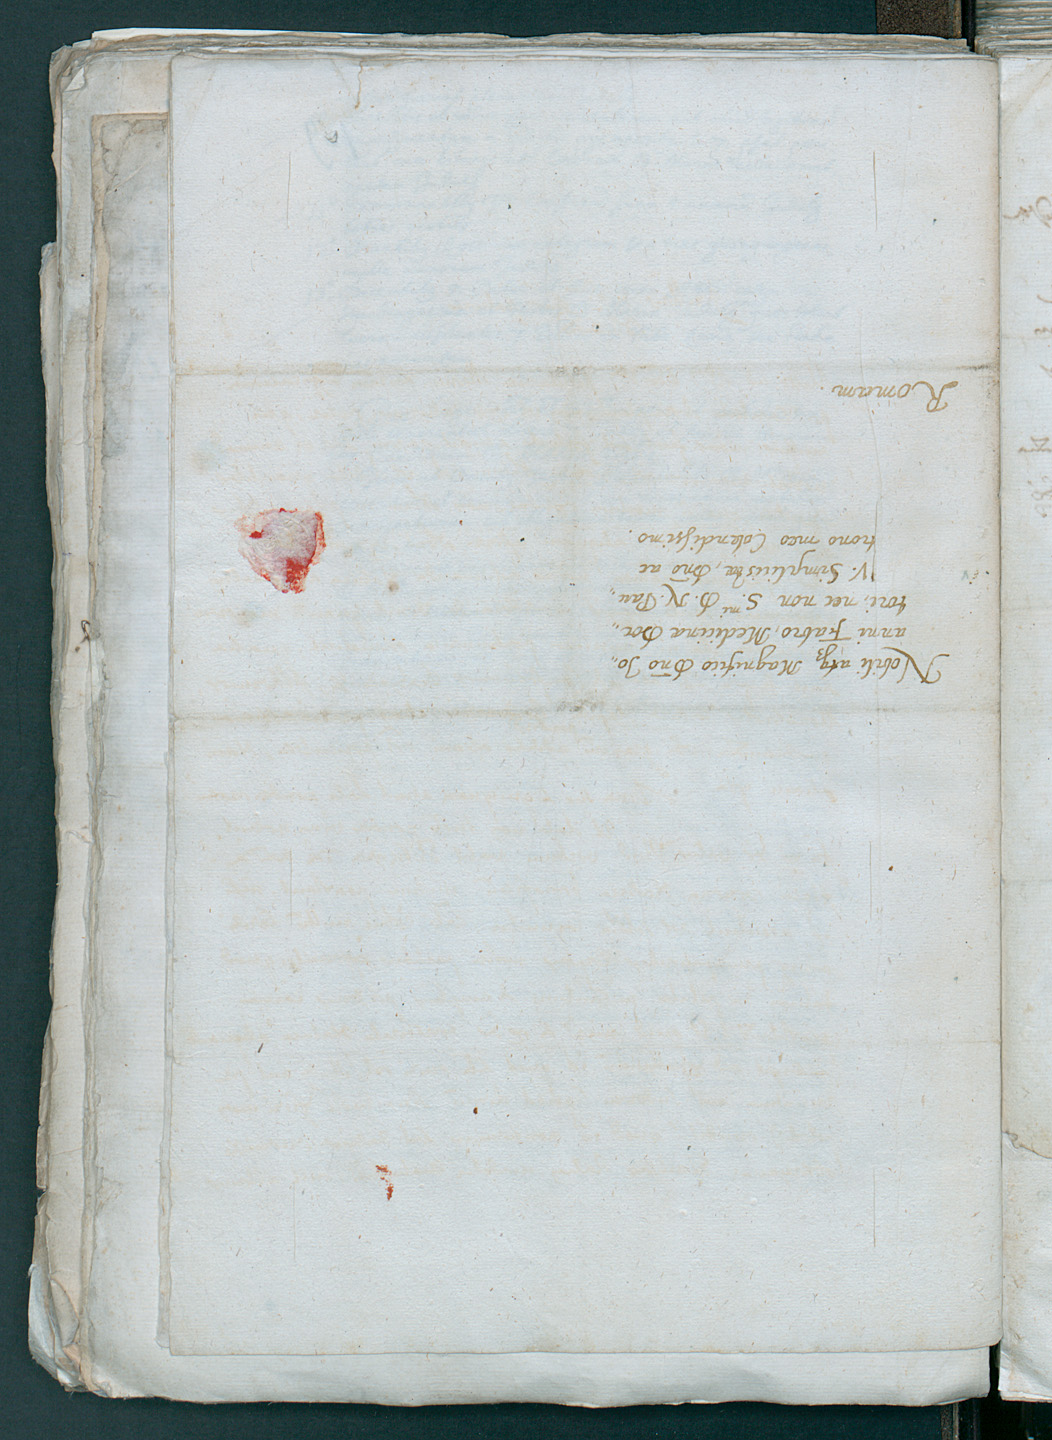 Nobili atq3 Magnifico Dño Jo„
anni Fabro, Medicinæ Doc„
tori, nec non S.mi D. N. Pau„
V. Simplicistæ, Dño ac
trono meo Colendissimo.
Romam.